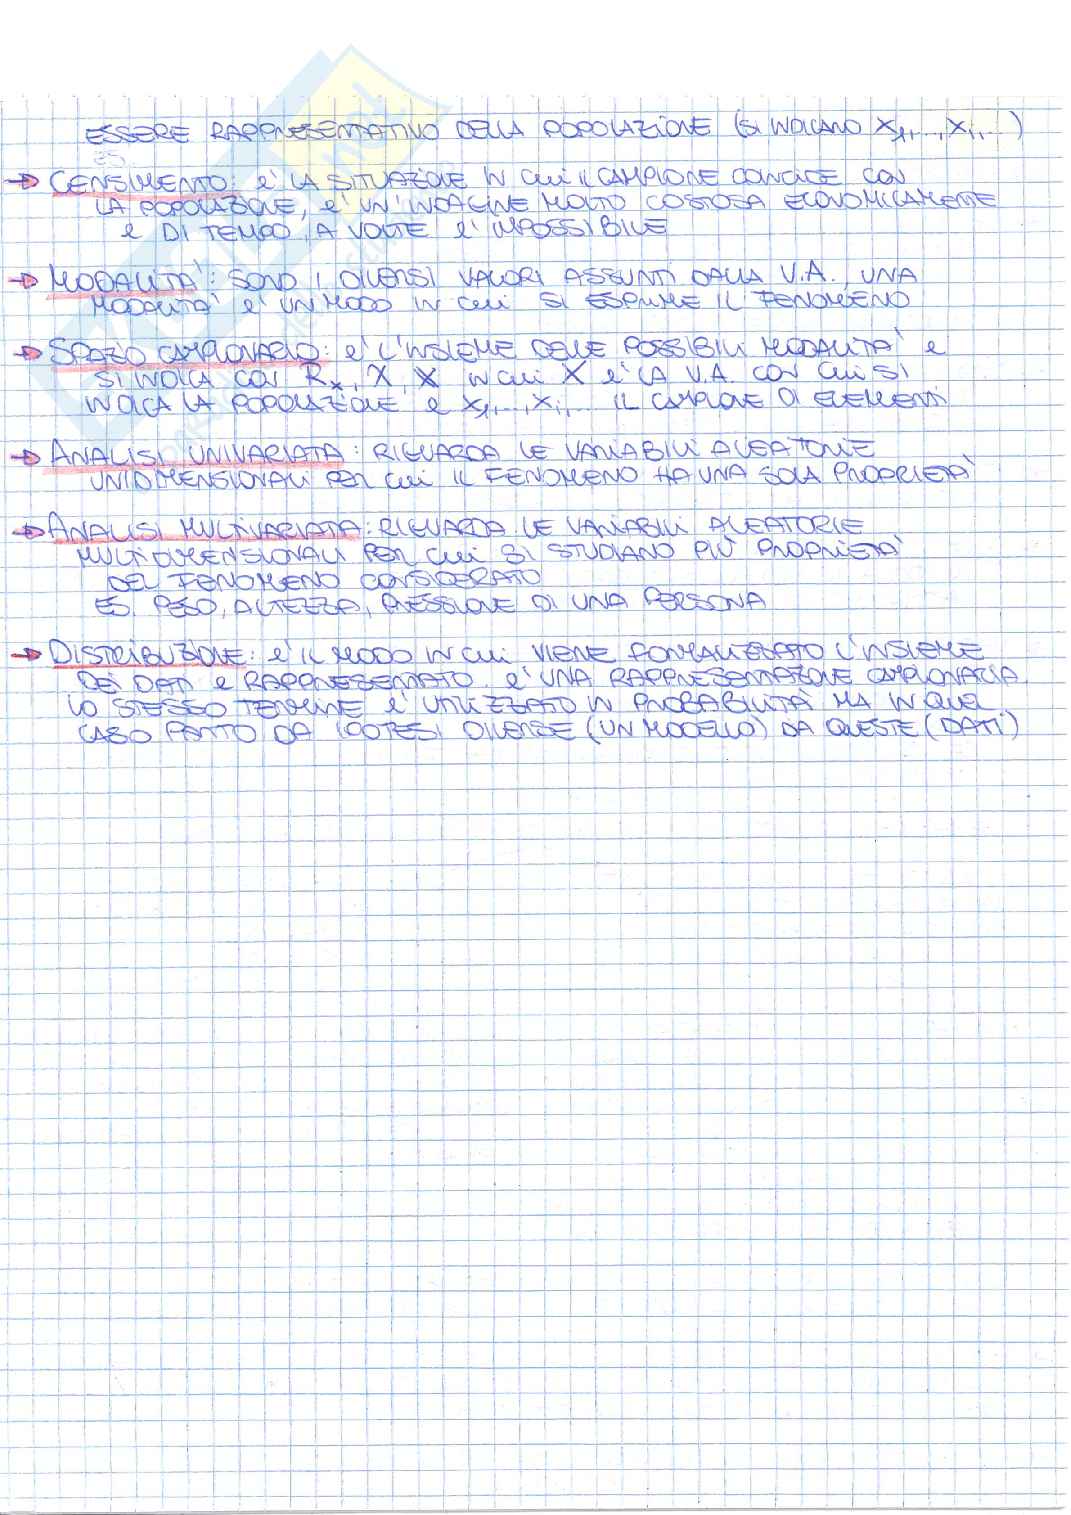 ESSERE RAPPRESENTATIVO DELLA POPOLAZIONE (SI INDICANO X₁,...,Xᵢ,...)
ES
→ CENSIMENTO: E' LA SITUAZIONE IN CUI IL CAMPIONE COINCIDE CON
LA POPOLAZIONE, E' UN'INDAGINE MOLTO COSTOSA ECONOMICAMENTE
E DI TEMPO, A VOLTE E' IMPOSSIBILE
→ MODALITA': SONO I DIVERSI VALORI ASSUNTI DALLA V.A., UNA
MODALITA' E' UN MODO IN CUI SI ESPRIME IL FENOMENO
→ SPAZIO CAMPIONARIO: E' L'INSIEME DELLE POSSIBILI MODALITA' E
SI INDICA CON Rₓ, X, X IN CUI X E' LA V.A. CON CUI SI
INDICA LA POPOLAZIONE E X₁,...,Xᵢ,... IL CAMPIONE DI ELEMENTI
→ ANALISI UNIVARIATA: RIGUARDA LE VARIABILI ALEATORIE
UNIDIMENSIONALI PER CUI IL FENOMENO HA UNA SOLA PROPRIETA'
→ ANALISI MULTIVARIATA: RIGUARDA LE VARIABILI ALEATORIE
MULTIDIMENSIONALI PER CUI SI STUDIANO PIU' PROPRIETA'
DEL FENOMENO CONSIDERATO
ES. PESO, ALTEZZA, PRESSIONE DI UNA PERSONA
→ DISTRIBUZIONE: E' IL MODO IN CUI VIENE FORMALIZZATO L'INSIEME
DEI DATI E RAPPRESENTATO. E' UNA RAPPRESENTAZIONE CAMPIONARIA
LO STESSO TERMINE E' UTILIZZATO IN PROBABILITÀ MA IN QUEL
CASO PARTO DA IPOTESI DIVERSE (UN MODELLO) DA QUESTE (DATI)